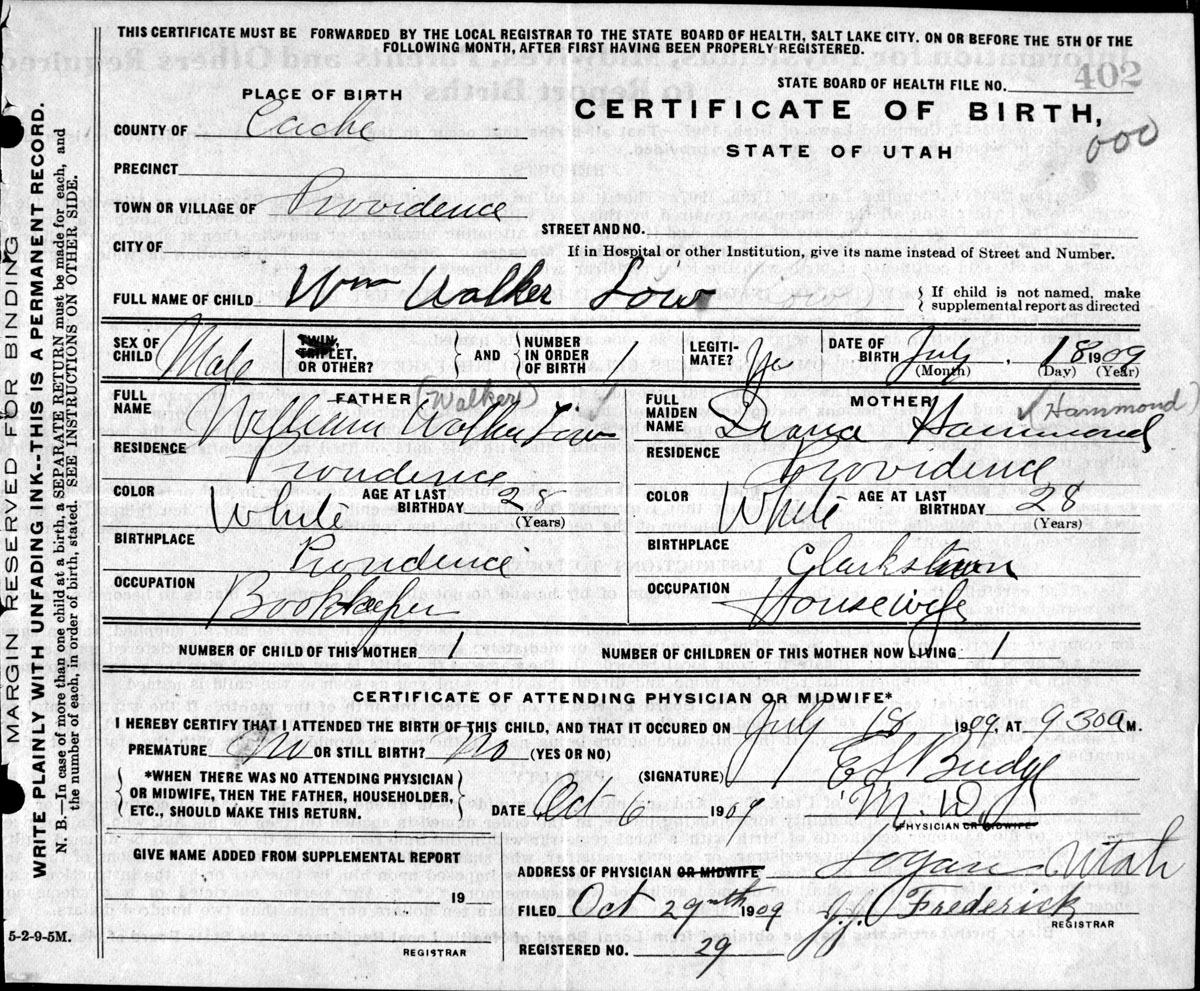 THIS CERTIFICATE MUST BE FORWARDED BY THE LOCAL REGISTRAR TO THE STATE BOARD OF HEALTH, SALT LAKE CITY. ON OR BEFORE THE 5TH OF THE
FOLLOWING MONTH, AFTER FIRST HAVING BEEN PROPERLY REGISTERED.
STATE BOARD OF HEALTH FILE NO. 402
PLACE OF BIRTH
CERTIFICATE OF BIRTH,
000
COUNTY OF Cache
STATE OF UTAH
PRECINCT
TOWN OR VILLAGE OF Providence
STREET AND NO.
CITY OF
If in Hospital or other Institution, give its name instead of Street and Number.
FULL NAME OF CHILD Wm Walker Low
If child is not named, make
supplemental report as directed
SEX OF CHILD Male
TWIN, TRIPLET, OR OTHER?
AND
NUMBER IN ORDER OF BIRTH 1
LEGITIMATE? Yes
DATE OF BIRTH July 18 1909
(Month) (Day) (Year)
FATHER (Walker)
FULL NAME William Walker Low
RESIDENCE Providence
COLOR White
AGE AT LAST BIRTHDAY 28
(Years)
BIRTHPLACE Providence
OCCUPATION Bookkeeper
MOTHER Hammond
FULL MAIDEN NAME Diana Hammond
RESIDENCE Providence
COLOR White
AGE AT LAST BIRTHDAY 28
(Years)
BIRTHPLACE Clarkston
OCCUPATION Housewife
NUMBER OF CHILD OF THIS MOTHER 1
NUMBER OF CHILDREN OF THIS MOTHER NOW LIVING 1
CERTIFICATE OF ATTENDING PHYSICIAN OR MIDWIFE*
I HEREBY CERTIFY THAT I ATTENDED THE BIRTH OF THIS CHILD, AND THAT IT OCCURED ON July 18 1909, AT 9 30a M.
PREMATURE No OR STILL BIRTH? No (YES OR NO)
*WHEN THERE WAS NO ATTENDING PHYSICIAN
OR MIDWIFE, THEN THE FATHER, HOUSEHOLDER,
ETC., SHOULD MAKE THIS RETURN.
(SIGNATURE) Budge
M.D.
DATE Oct 6 1909
PHYSICIAN OR MIDWIFE
GIVE NAME ADDED FROM SUPPLEMENTAL REPORT
19
REGISTRAR
ADDRESS OF PHYSICIAN OR MIDWIFE Logan Utah
FILED Oct 29th 1909 Frederick
REGISTRAR
REGISTERED NO. 29
5-2-9-5M.
MARGIN RESERVED FOR BINDING
WRITE PLAINLY WITH UNFADING INK--THIS IS A PERMANENT RECORD.
N. B.—In case of more than one child at a birth, a SEPARATE RETURN must be made for each, and
the number of each, in order of birth, stated. SEE INSTRUCTIONS ON OTHER SIDE.